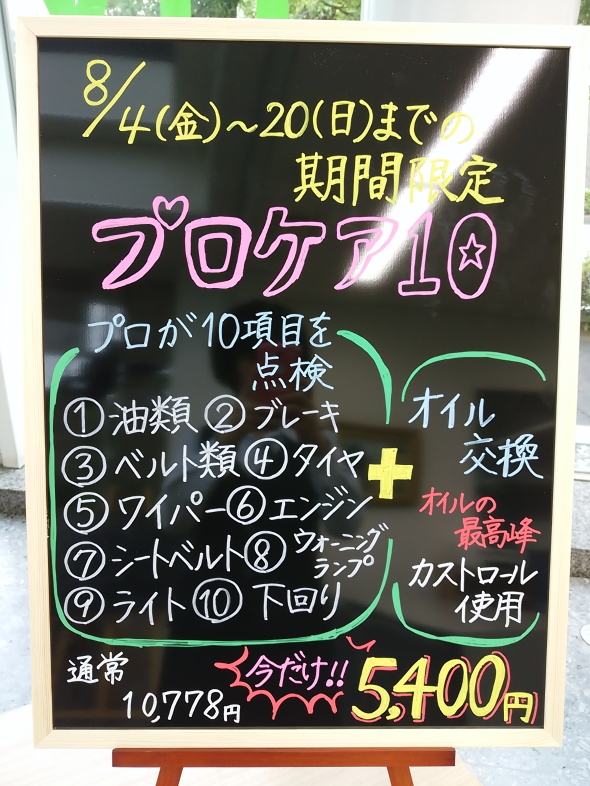 8/4(金)～20(日)までの
期間限定
プロケア10
プロが10項目を
点検
①油類 ②ブレーキ
③ベルト類 ④タイヤ
⑤ワイパー ⑥エンジン
⑦シートベルト ⑧ウォーニング
ランプ
⑨ライト ⑩下回り
+
オイル
交換
オイルの
最高峰
カストロール
使用
通常
10,778円
今だけ!!
5,400円